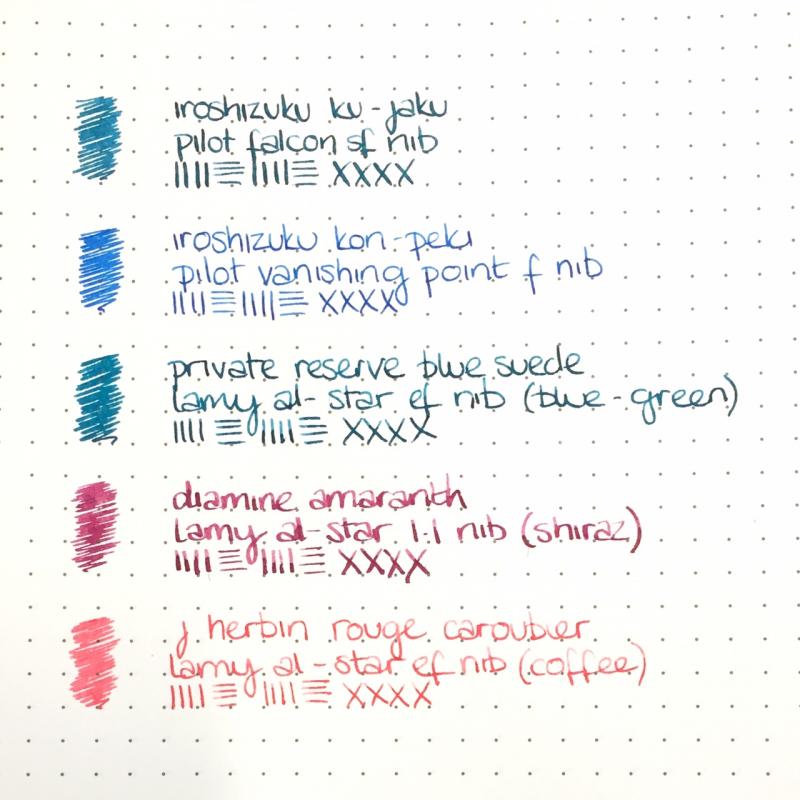 iroshizuku ku-jaku
pilot falcon sf nib
XXXX
iroshizuku kon-peki
pilot vanishing point f nib
XXXX
private reserve blue suede
lamy al-star ef nib (blue-green)
XXXX
diamine amaranth
lamy al-star 1.1 nib (shiraz)
XXXX
j. herbin rouge caroubier
lamy al-star ef nib (coffee)
XXXX